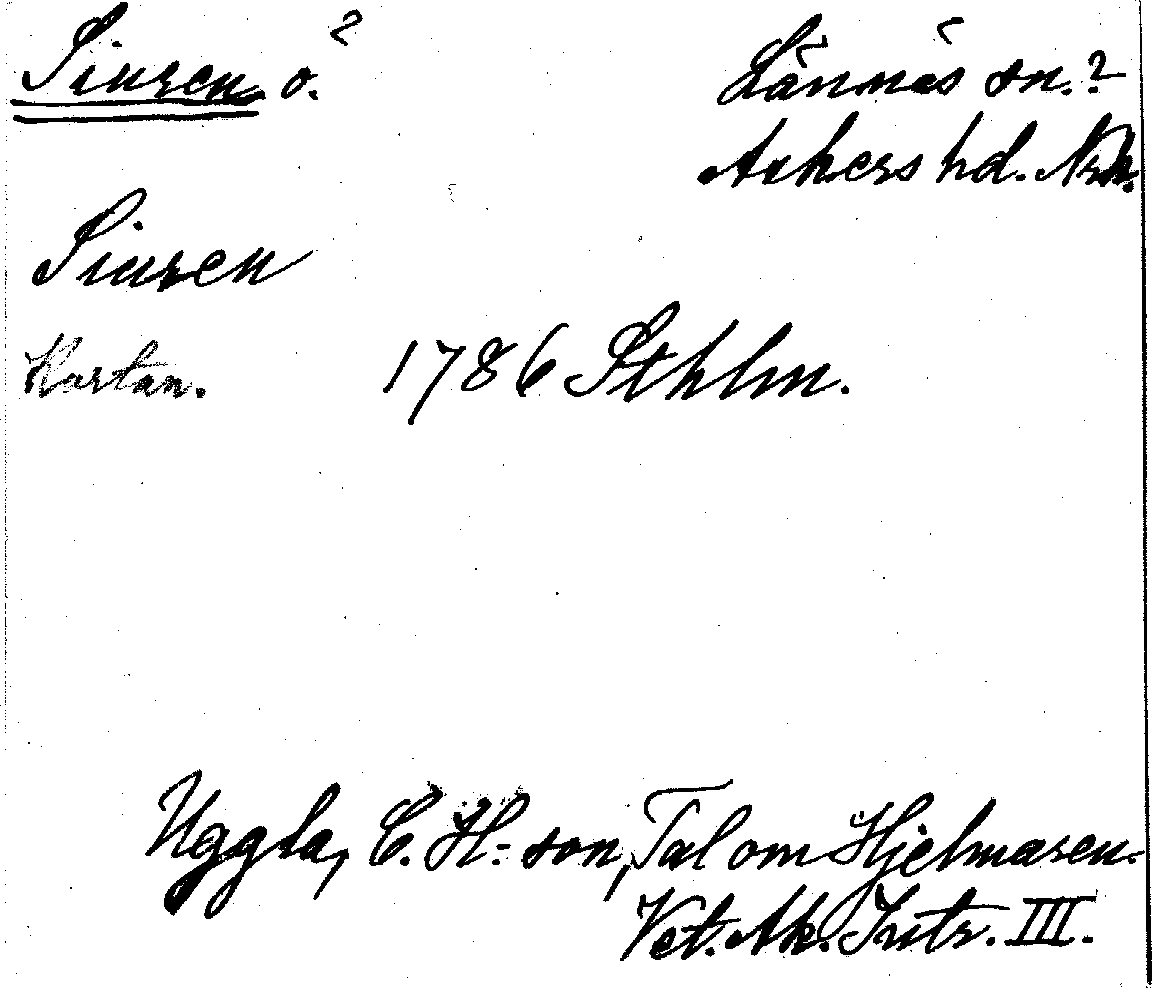 Siuren ö.?
Lännäs sn.?
Askers hd. Nrk.
Siuren
Kartan. 1786 Sthlm.
Uggla, C. H:son, Tal om Hjelmaren.
Vet. Ak. Intr. III.